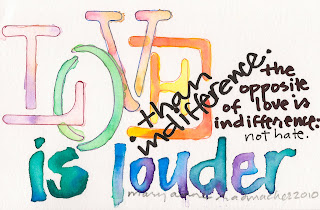 LOVE
is louder
than
indifference.
the
opposite
of love is
indifference:
not hate.
mary anne radmacher 2010